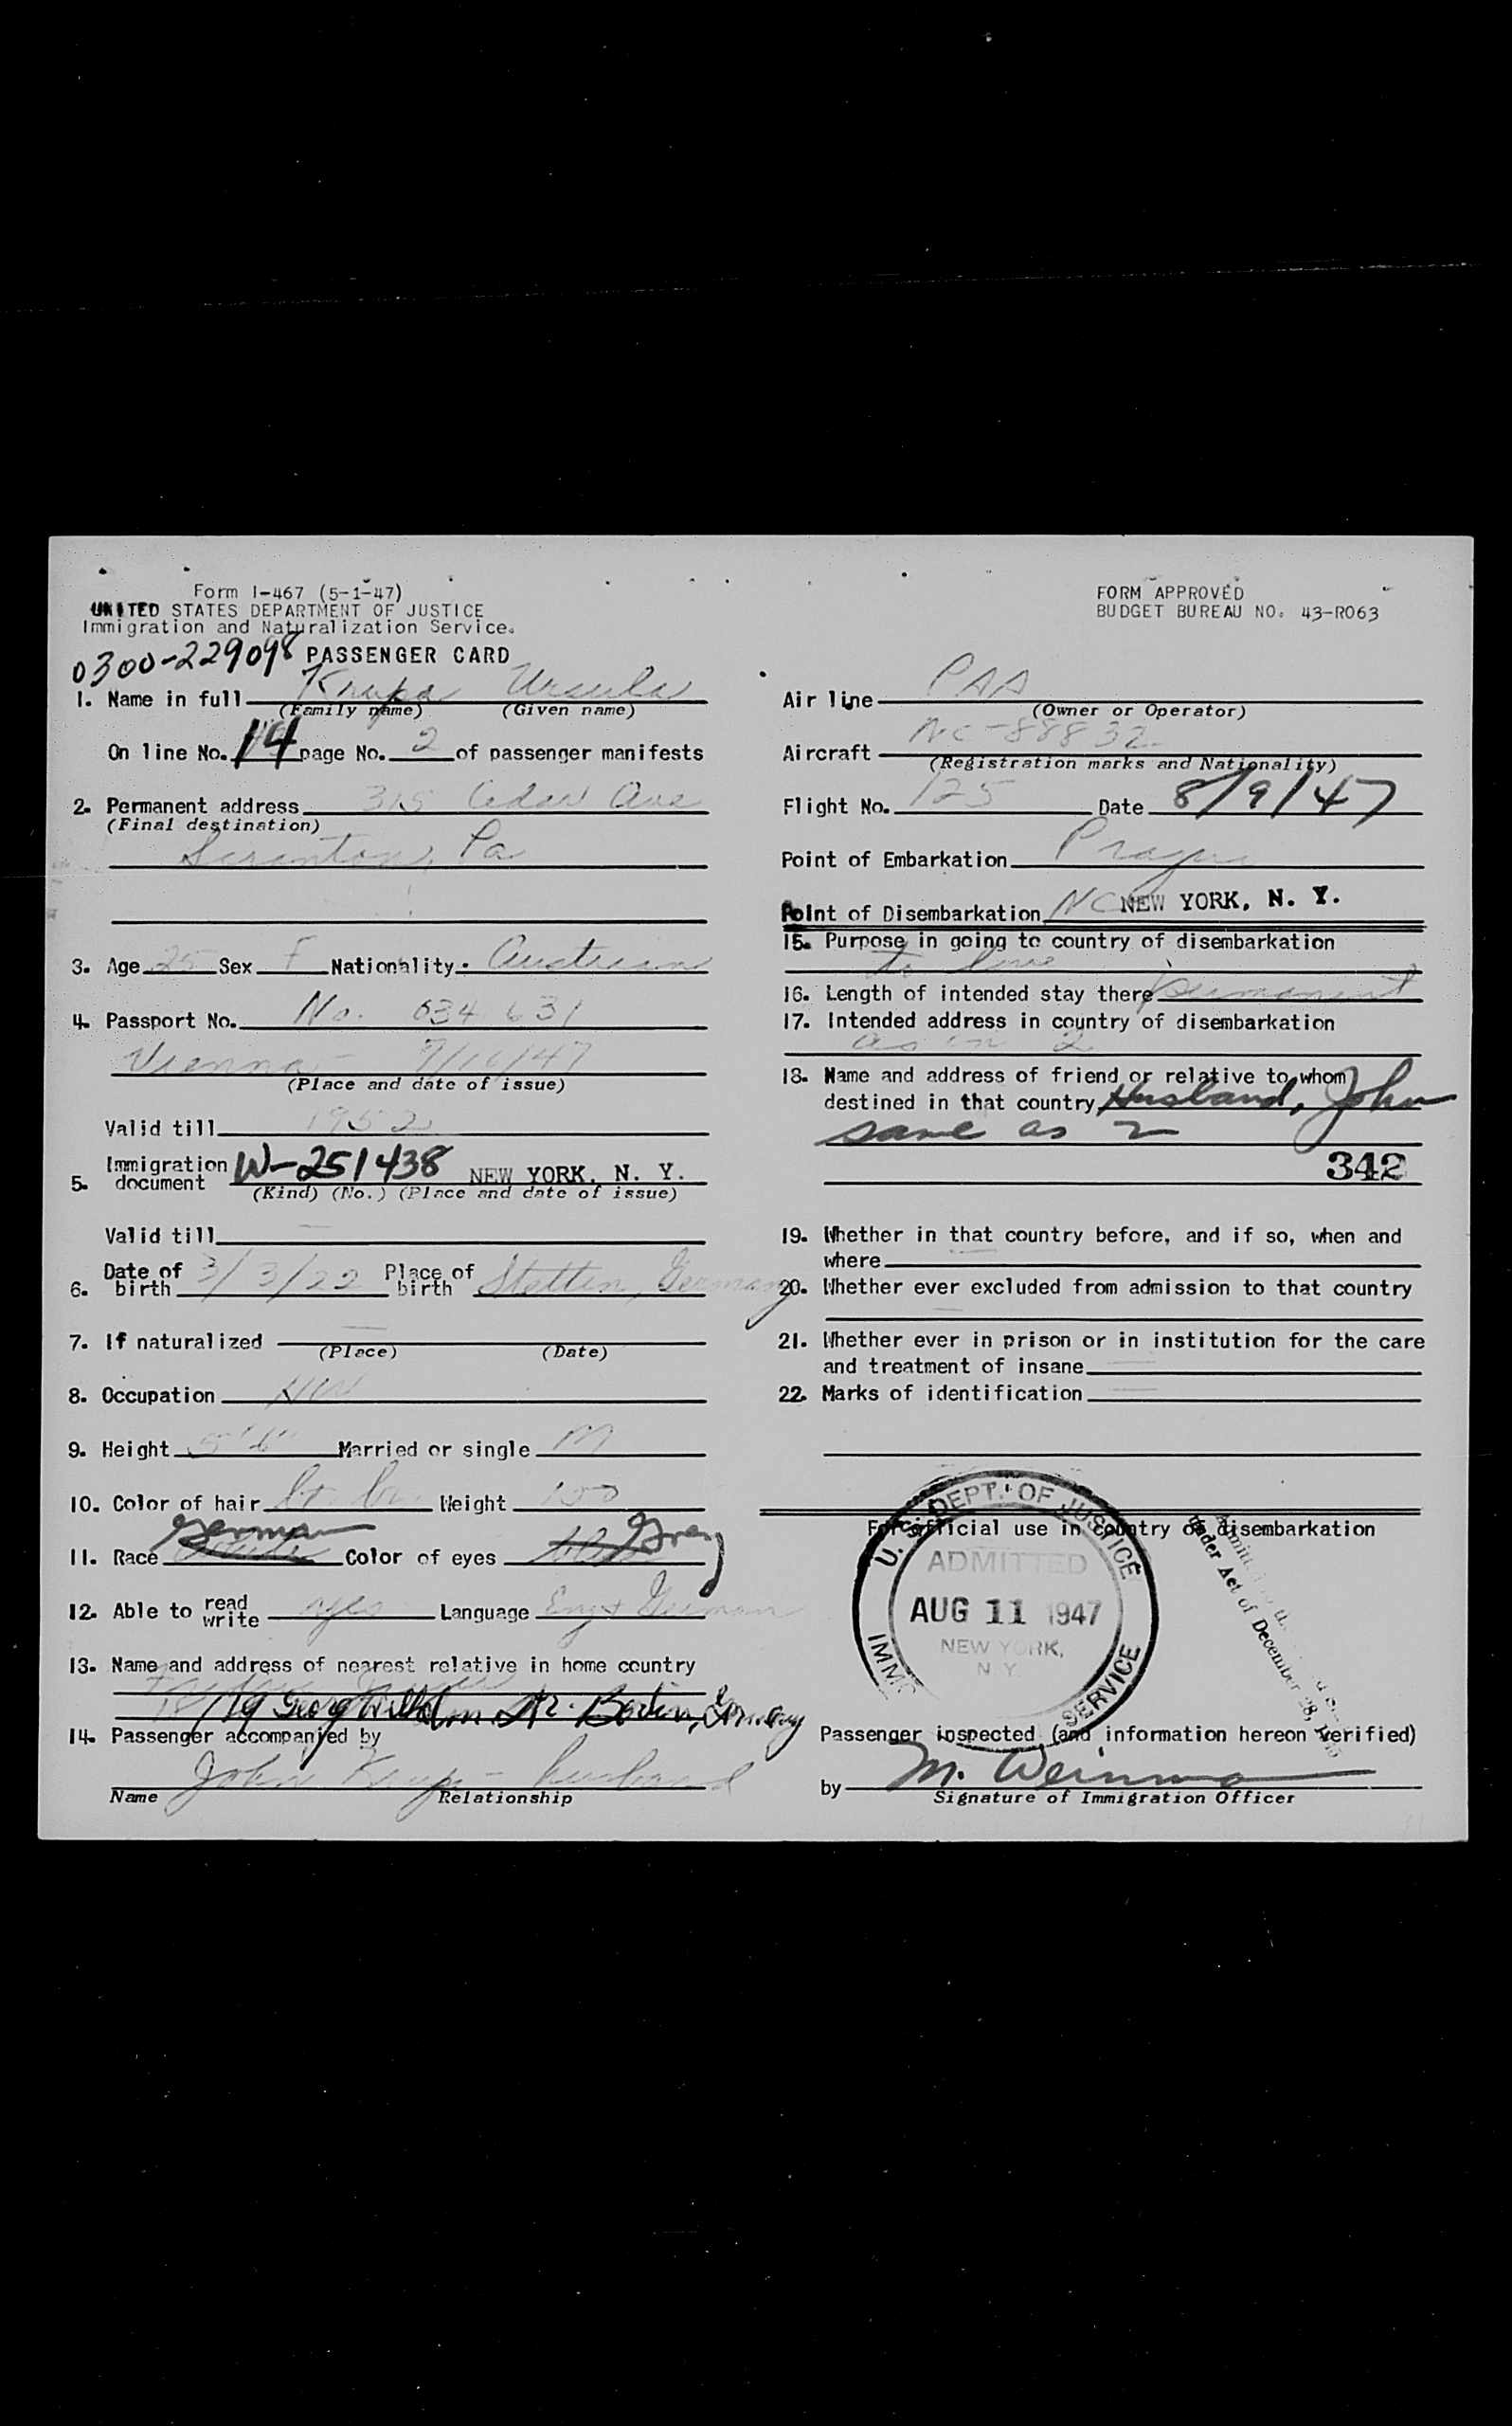 Form I-467 (5-1-47)
UNITED STATES DEPARTMENT OF JUSTICE
Immigration and Naturalization Service.
0300-229098 PASSENGER CARD
1. Name in full Krupa Ursula
(Family name) (Given name)
On line No. 14 page No. 2 of passenger manifests
2. Permanent address 315 Cedar Ave
(Final destination)
Scranton, Pa
3. Age 25 Sex F Nationality. Austrian
4. Passport No. No. 034 631
Vienna - 7/16/47
(Place and date of issue)
Valid till 1952
5. Immigration document W-251438 NEW YORK, N. Y.
(Kind) (No.) (Place and date of issue)
Valid till —
6. Date of birth 3/3/22 Place of birth Stettin, Germany
7. If naturalized —
(Place) (Date)
8. Occupation HW
9. Height 5'6" Married or single M
10. Color of hair Weight
11. Race German Color of eyes Grey
12. Able to read write yes Language Eng & German
13. Name and address of nearest relative in home country
Berlin, Germany
14. Passenger accompanied by
John Krupa - husband
Name Relationship
FORM APPROVED
BUDGET BUREAU NO. 43-R063
Air line PAA
(Owner or Operator)
Aircraft NC-88832
(Registration marks and Nationality)
Flight No. 125 Date 8/9/47
Point of Embarkation Prague
Point of Disembarkation NC NEW YORK, N. Y.
15. Purpose in going to country of disembarkation
to live
16. Length of intended stay there permanent
17. Intended address in country of disembarkation
as in 2
18. Name and address of friend or relative to whom
destined in that country Husband, John
same as 2
342
19. Whether in that country before, and if so, when and
where —
20. Whether ever excluded from admission to that country
—
21. Whether ever in prison or in institution for the care
and treatment of insane —
22. Marks of identification —
For official use in country of disembarkation
U. S. DEPT. OF JUSTICE
ADMITTED
AUG 11 1947
NEW YORK,
N. Y.
IMMI SERVICE
Under Act of December 28, 1945
Passenger inspected (and information hereon verified)
by M. Weinman
Signature of Immigration Officer